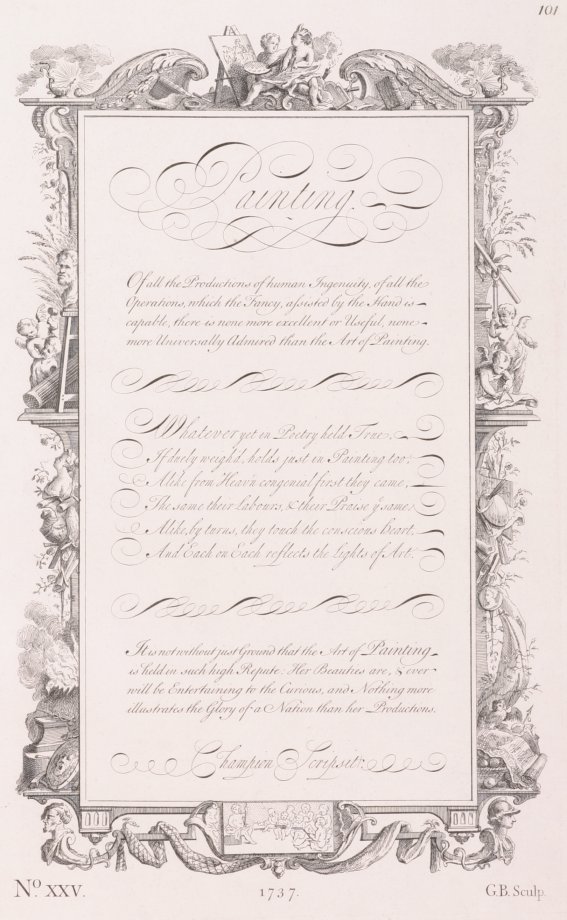 101
Painting.
Of all the Productions of human Ingenuity, of all the
Operations, which the Fancy, assisted by the Hand is
capable, there is none more excellent or Useful, none
more Universally Admired than the Art of Painting.
Whatever yet in Poetry held True,
If duely weigh'd, holds just in Painting too;
Alike from Heav'n congenial first they came,
The same their labours, & their Praise ye same;
Alike, by turns, they touch the conscious heart,
And Each on Each reflects the Lights of Art.
It is not without just Ground that the Art of Painting
is held in such high Repute: Her Beauties are, & ever
will be Entertaining to the Curious, and Nothing more
illustrates the Glory of a Nation than her Productions.
Champion Scripsit.
No. XXV.
1737.
G.B. Sculp.